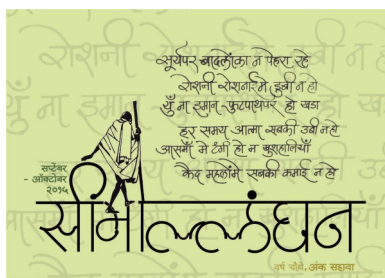 सूर्यपर बादलोंका न पेहरा रहे
रोशनी रोशनाईमे डुबी न हो
यूँ ना इमान फुटपाथपर हो खडा
हर समय आत्मा सबकी उबी न हो
आसमाँ से टंगी हो न खुशहालियाँ
कैद महलोंमे सबकी कमाई न हो
सप्टेंबर
- ऑक्टोबर
२०१५
सीमोल्लंघन
वर्ष चौथे, अंक सहावा